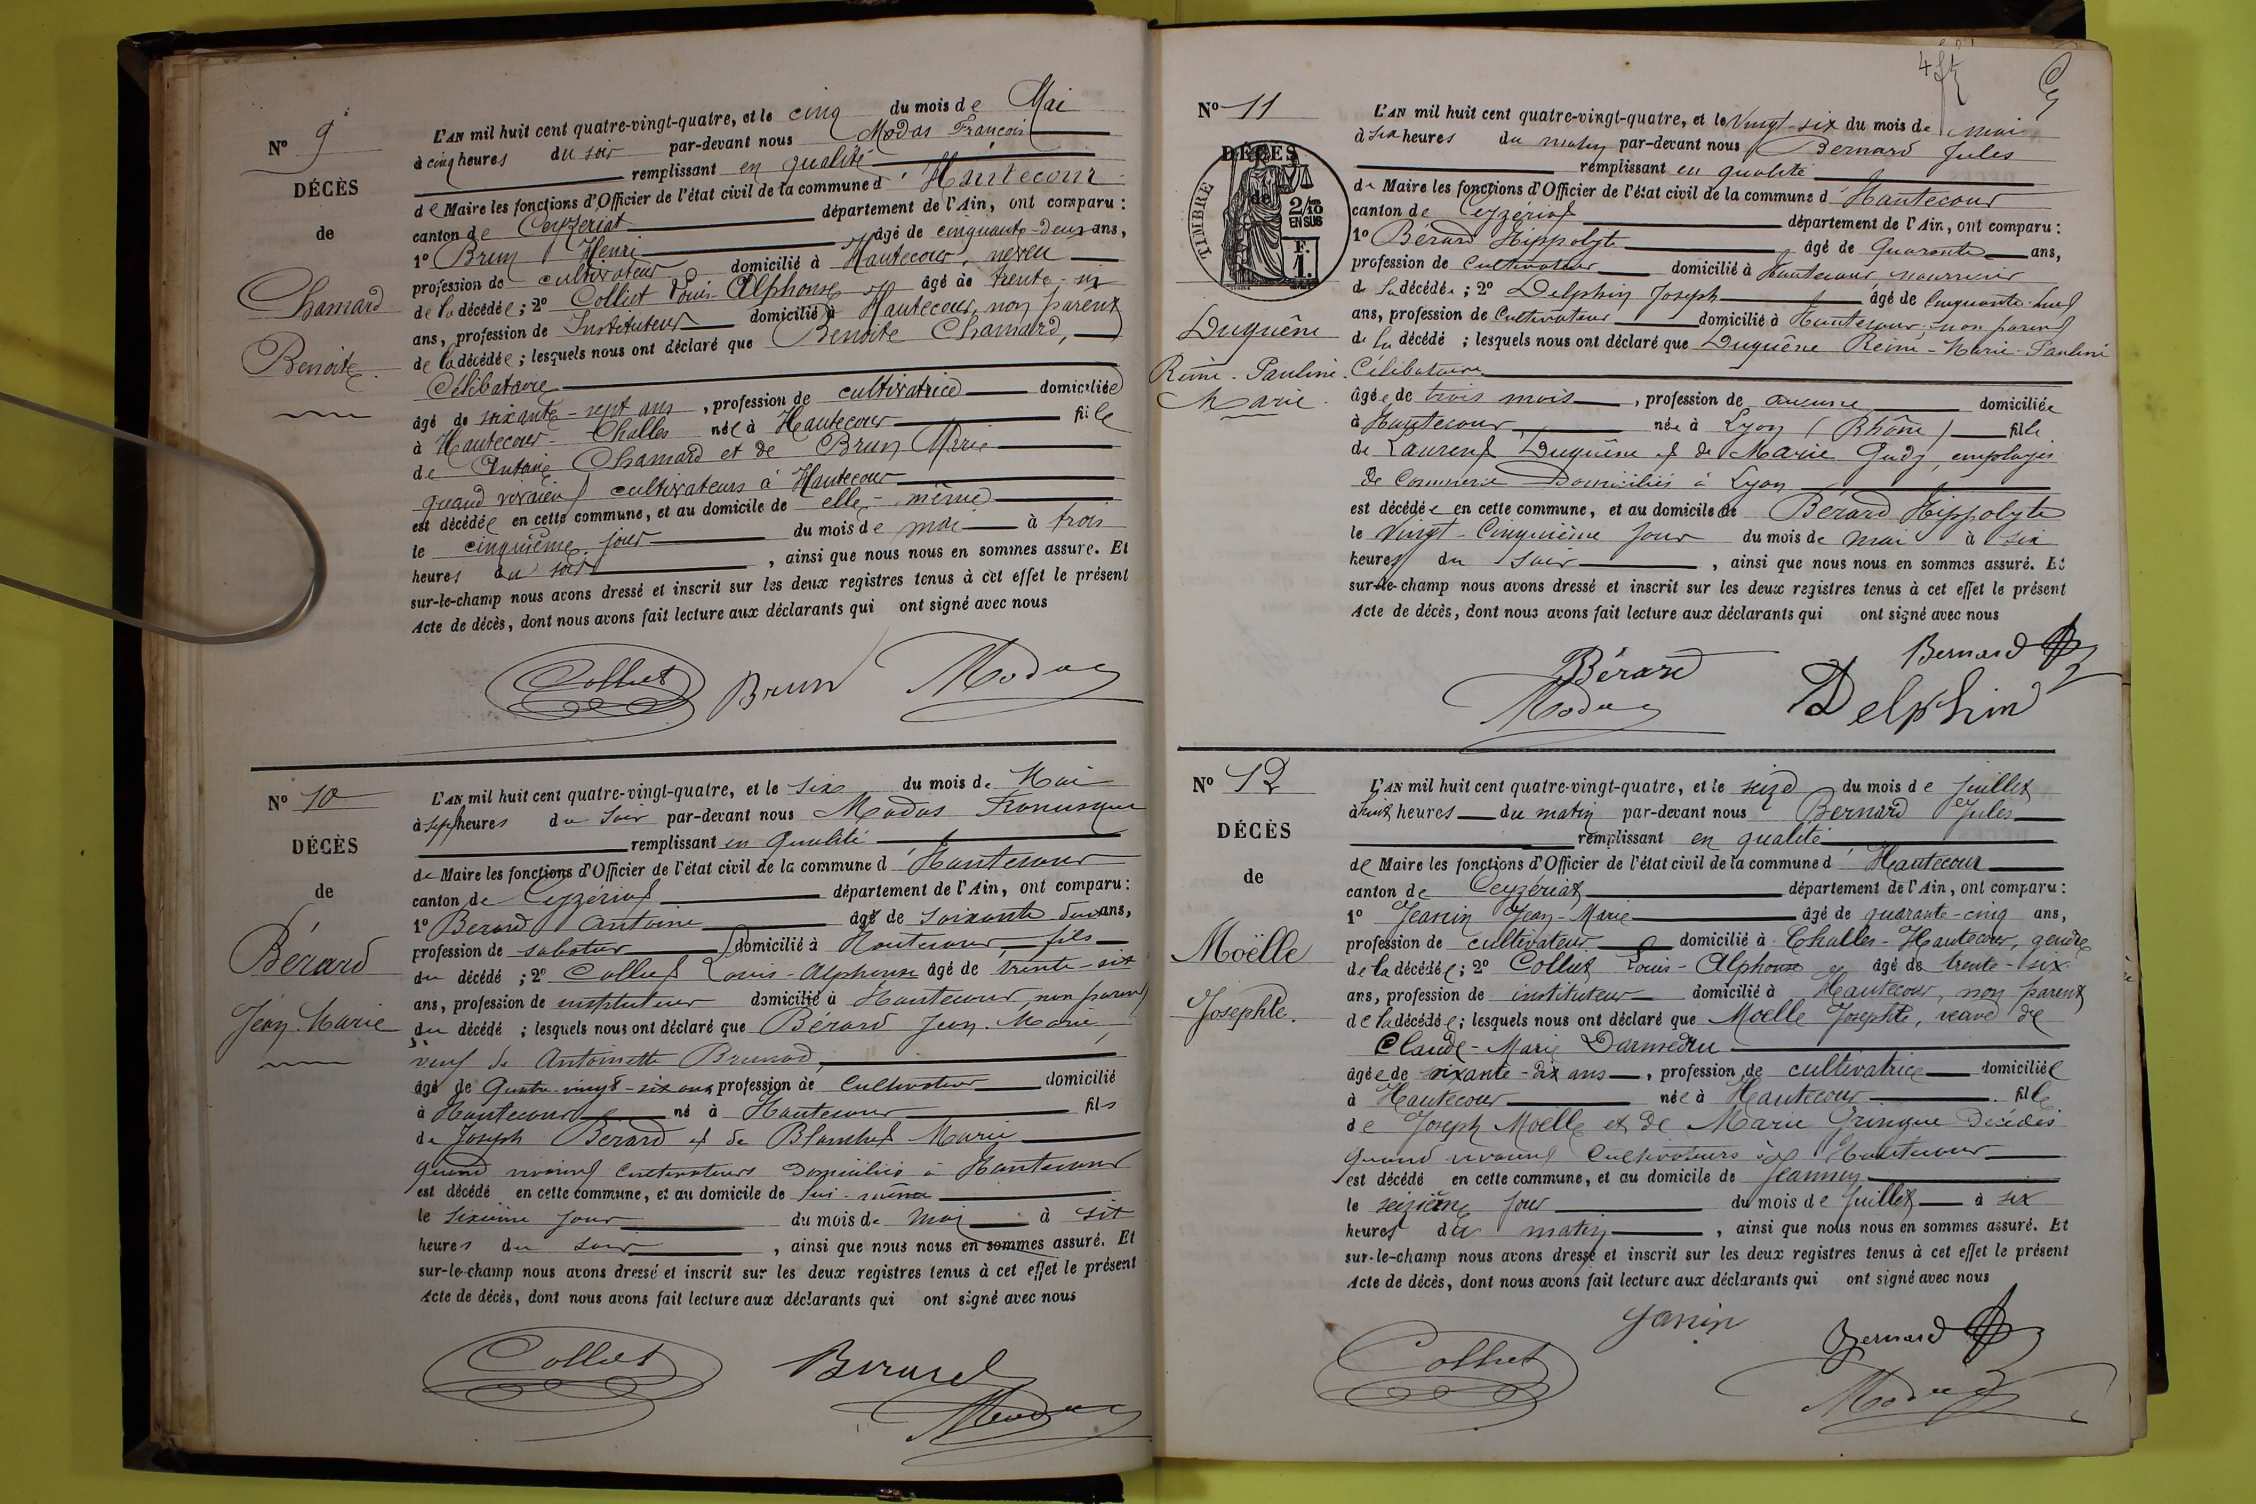 N° 9
DÉCÈS
de
Chamard
Benoite
L'AN mil huit cent quatre-vingt-quatre, et le cinq du mois de Mai
à cinq heures du soir par-devant nous Modas François
remplissant en qualité
de Maire les fonctions d'Officier de l'état civil de la commune d'Hautecour
canton de Ceyzériat département de l'Ain, ont comparu :
1° Brun Henri âgé de cinquante-deux ans,
profession de cultivateur domicilié à Hautecour, neveu
de la décédée ; 2° Colliet Louis-Alphonse âgé de trente-six
ans, profession de Instituteur domicilié à Hautecour, non parent
de la décédée ; lesquels nous ont déclaré que Benoite Chamard,
Célibataire
âgé de soixante-sept ans, profession de cultivatrice domiciliée
à Hautecour-Challes née à Hautecour fille
de Antoine Chamard et de Brun Marie
quand vivaient cultivateurs à Hautecour
est décédée en cette commune, et au domicile de elle-même
le cinquième jour du mois de mai à trois
heures du soir, ainsi que nous nous en sommes assuré. Et
sur-le-champ nous avons dressé et inscrit sur les deux registres tenus à cet effet le présent
Acte de décès, dont nous avons fait lecture aux déclarants qui ont signé avec nous
Colliet Brun Modas
N° 10
DÉCÈS
de
Bérard
Jean Marie
L'AN mil huit cent quatre-vingt-quatre, et le six du mois de Mai
à sept heures du soir par-devant nous Modas
remplissant en qualité
de Maire les fonctions d'Officier de l'état civil de la commune d'Hautecour
canton de Ceyzériat département de l'Ain, ont comparu :
1° Berard Antoine âgé de soixante deux ans,
profession de sabotier domicilié à Hautecour fils
du décédé ; 2° Colliet Louis-Alphonse âgé de trente-six
ans, profession de instituteur domicilié à Hautecour, non parent
du décédé ; lesquels nous ont déclaré que Bérard Jean-Marie
veuf de Antoinette
âgé de Quatre-vingt-six ans profession de Cultivateur domicilié
à Hautecour né à Hautecour fils
de Joseph Berard et de Blanchet Marie
quand vivaient cultivateurs domiciliés à Hautecour
est décédé en cette commune, et au domicile de lui-même
le sixième jour du mois de Mai à
heures du soir, ainsi que nous nous en sommes assuré. Et
sur-le-champ nous avons dressé et inscrit sur les deux registres tenus à cet effet le présent
Acte de décès, dont nous avons fait lecture aux déclarants qui ont signé avec nous
Colliet Berard
Modas
N° 11
DÉCÈS
de
TIMBRE
2/10 EN SUS
F. 1.
Duquêne
Reine-Pauline
Marie
L'AN mil huit cent quatre-vingt-quatre, et le Vingt-six du mois de mai
à six heures du matin par-devant nous Bernard Jules
remplissant en qualité
de Maire les fonctions d'Officier de l'état civil de la commune d'Hautecour
canton de Ceyzériat département de l'Ain, ont comparu :
1° Bérard Hippolyte âgé de Quarante ans,
profession de Cultivateur domicilié à Hautecour, nourricier
de la décédée ; 2° Delphin Joseph âgé de Cinquante-huit
ans, profession de Cultivateur domicilié à Hautecour, non parent
de la décédé ; lesquels nous ont déclaré que Duquêne Reine-Marie-Pauline
Célibataire
âgée de trois mois, profession de aucune domiciliée
à Hautecour née à Lyon (Rhône) fille
de Laurent Duquêne et de Marie, employés
de Commerce Domiciliés à Lyon
est décédée en cette commune, et au domicile de Bérard Hippolyte
le Vingt-Cinquième jour du mois de mai à six
heures du soir, ainsi que nous nous en sommes assuré. Et
sur-le-champ nous avons dressé et inscrit sur les deux registres tenus à cet effet le présent
Acte de décès, dont nous avons fait lecture aux déclarants qui ont signé avec nous
Bernard
Bérard
Modas Delphin
N° 12
DÉCÈS
de
Moëlle
Josephte.
L'AN mil huit cent quatre-vingt-quatre, et le seize du mois de Juillet
à huit heures du matin par-devant nous Bernard Jules
remplissant en qualité
de Maire les fonctions d'Officier de l'état civil de la commune d'Hautecour
canton de Ceyzériat département de l'Ain, ont comparu :
1° Jeannin Jean-Marie âgé de quarante-cinq ans,
profession de cultivateur domicilié à Challes-Hautecour, gendre
de la décédée ; 2° Colliet Louis-Alphonse âgé de trente-six
ans, profession de instituteur domicilié à Hautecour, non parent
de la décédée ; lesquels nous ont déclaré que Moelle Josephte, veuve de
Claude-Marie Darmedru
âgée de soixante-dix ans, profession de cultivatrice domiciliée
à Hautecour née à Hautecour fille
de Joseph Moelle et de Marie Gringue Décédés
quand vivaient Cultivateurs à Hautecour
est décédé en cette commune, et au domicile de Jeannin
le seizième jour du mois de Juillet à six
heures du matin, ainsi que nous nous en sommes assuré. Et
sur-le-champ nous avons dressé et inscrit sur les deux registres tenus à cet effet le présent
Acte de décès, dont nous avons fait lecture aux déclarants qui ont signé avec nous
Janin
Colliet Bernard
Modas